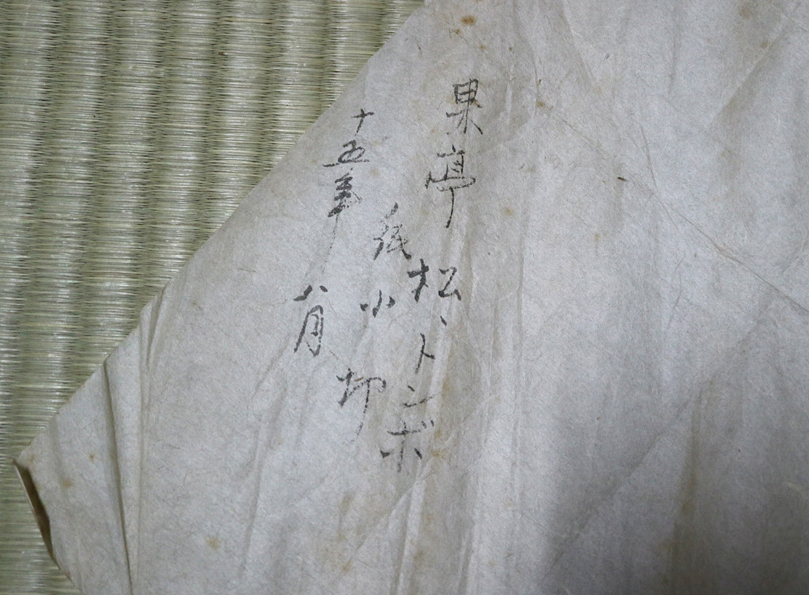 果亭 松、トンボ
紙小切
十五年 八月